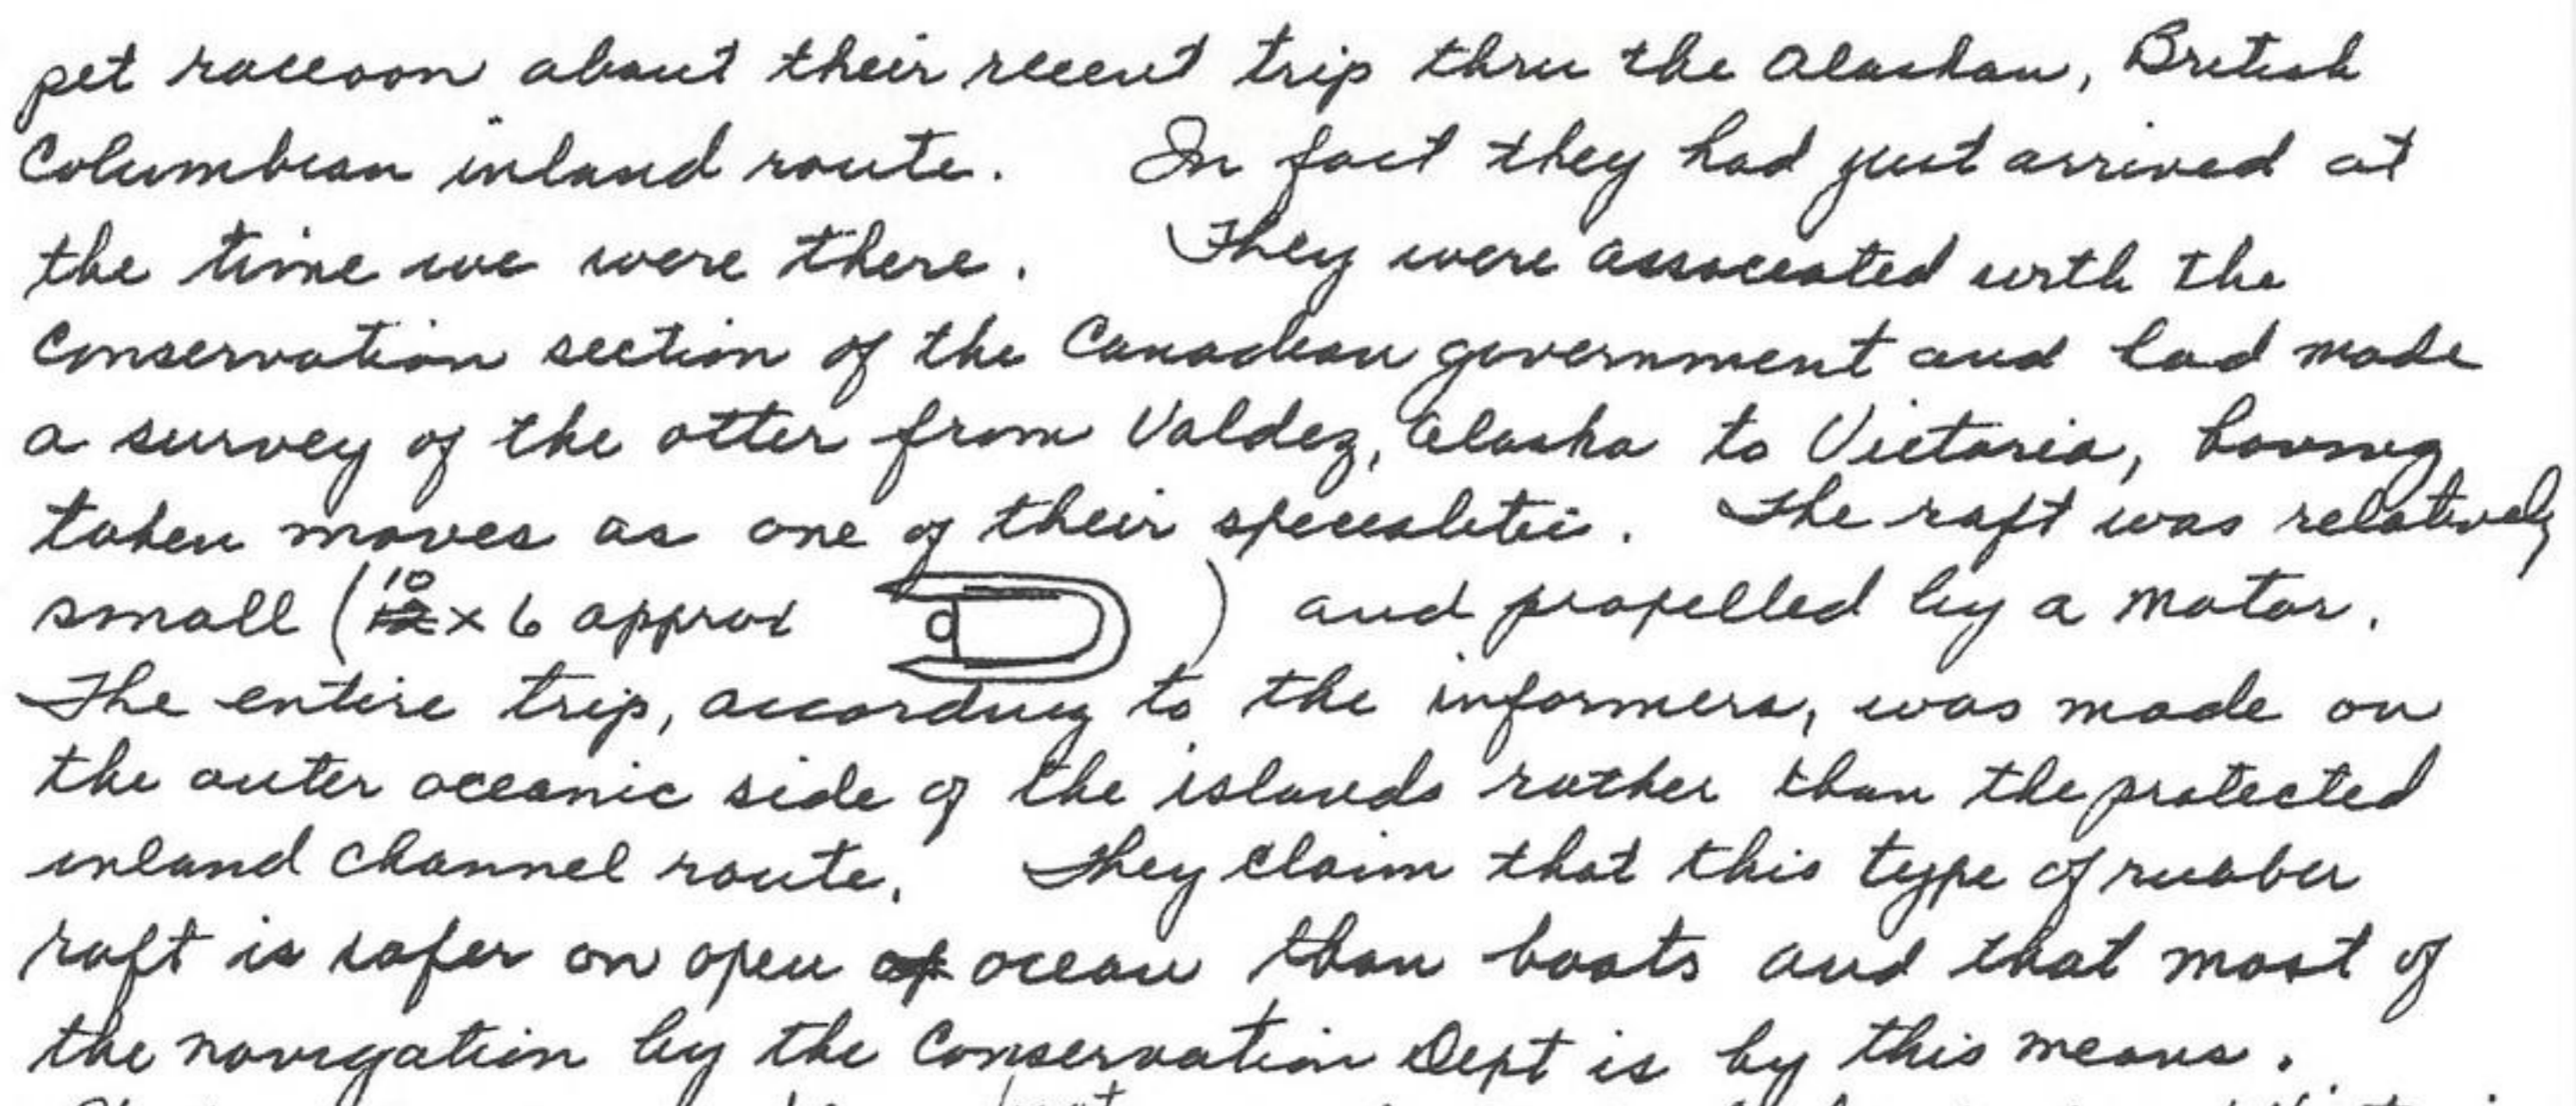 pet raccoon about their recent trip thru the Alaskan, British
Columbian inland route. In fact they had just arrived at
the time we were there. They were associated with the
Conservation section of the Canadian government and had made
a survey of the otter from Valdez, Alaska to Victoria, having
taken movies as one of their specialities. The raft was relatively
small (10 x 6 approx ) and propelled by a motor.
The entire trip, according to the informers, was made on
the outer oceanic side of the islands rather than the protected
inland channel route. They claim that this type of rubber
raft is safer on open ocean than boats and that most of
the navigation by the Conservation Dept is by this means.